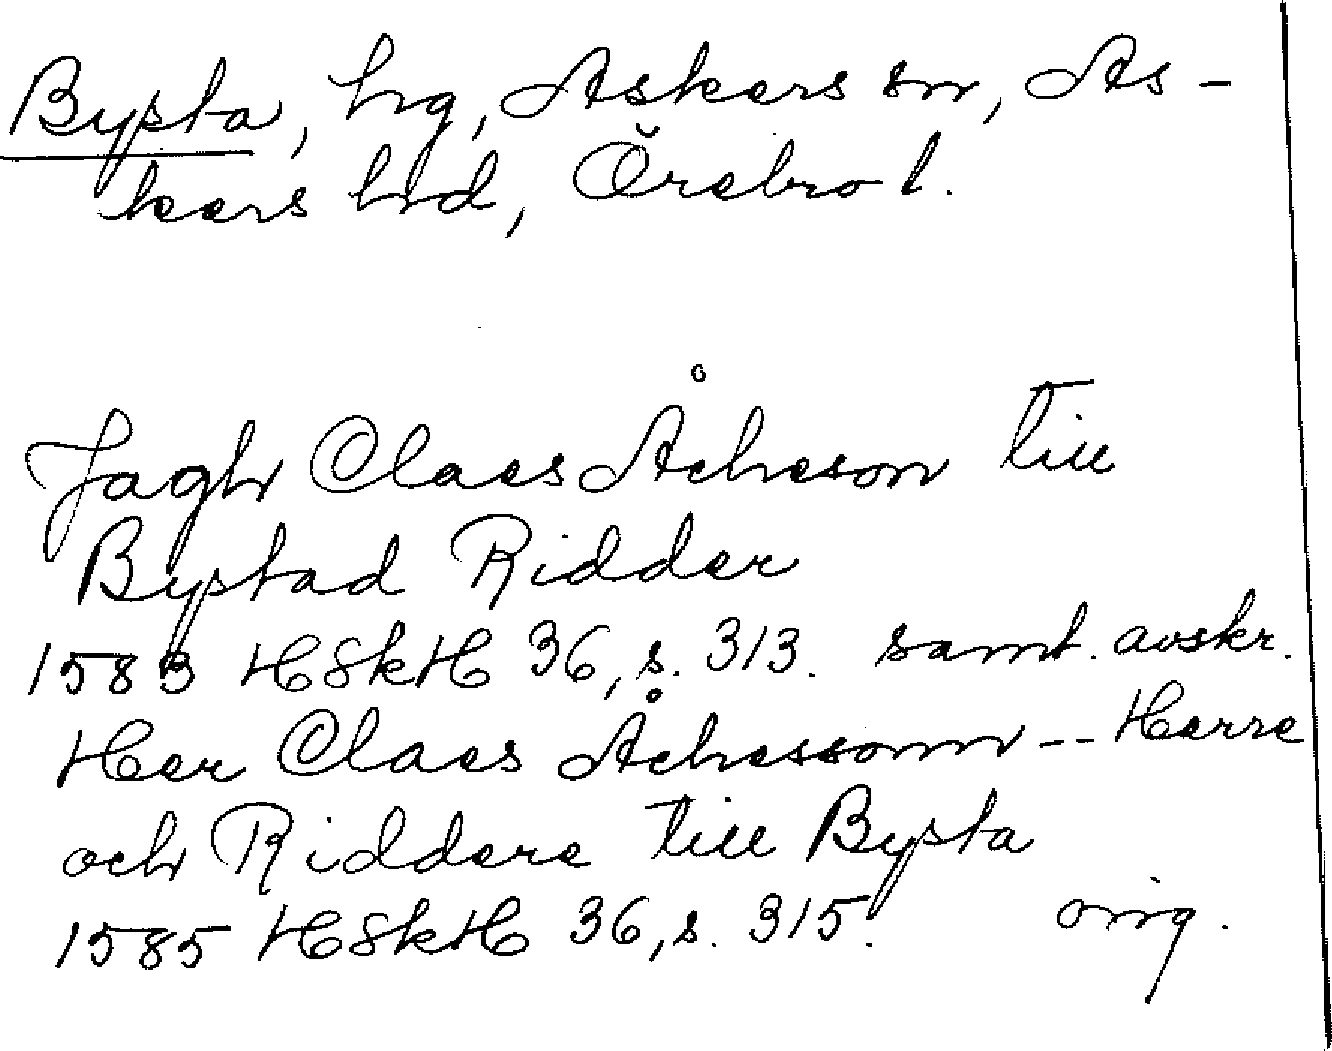 Bysta, hg, Askers sn, As-
kers hd, Örebro l.
Jagh Claes Åcheson till
Bystad Ridder
1583 HSkH 36, s. 313. samt. avskr.
Her Claes Åchessonn -- Herre
och Riddere till Bysta
1585 HSkH 36, s. 315. orig.